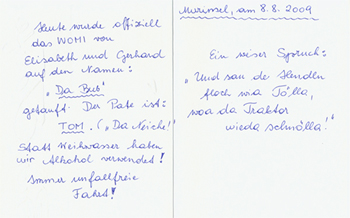 Heute wurde offiziell
das WOMI von
Elisabeth und Gerhard
auf den Namen:
„Da Bus"
getauft. Der Pate ist:
TOM. („Da Neiche!"
Statt Weihwasser haben
wir Alkohol verwendet!
Immer unfallfreie
Fahrt!
am 8.8.2009
Ein weiser Spruch:
„Und san de Hendln
floch wia Tölla,
woa da Traktor
wieda schnölla!"